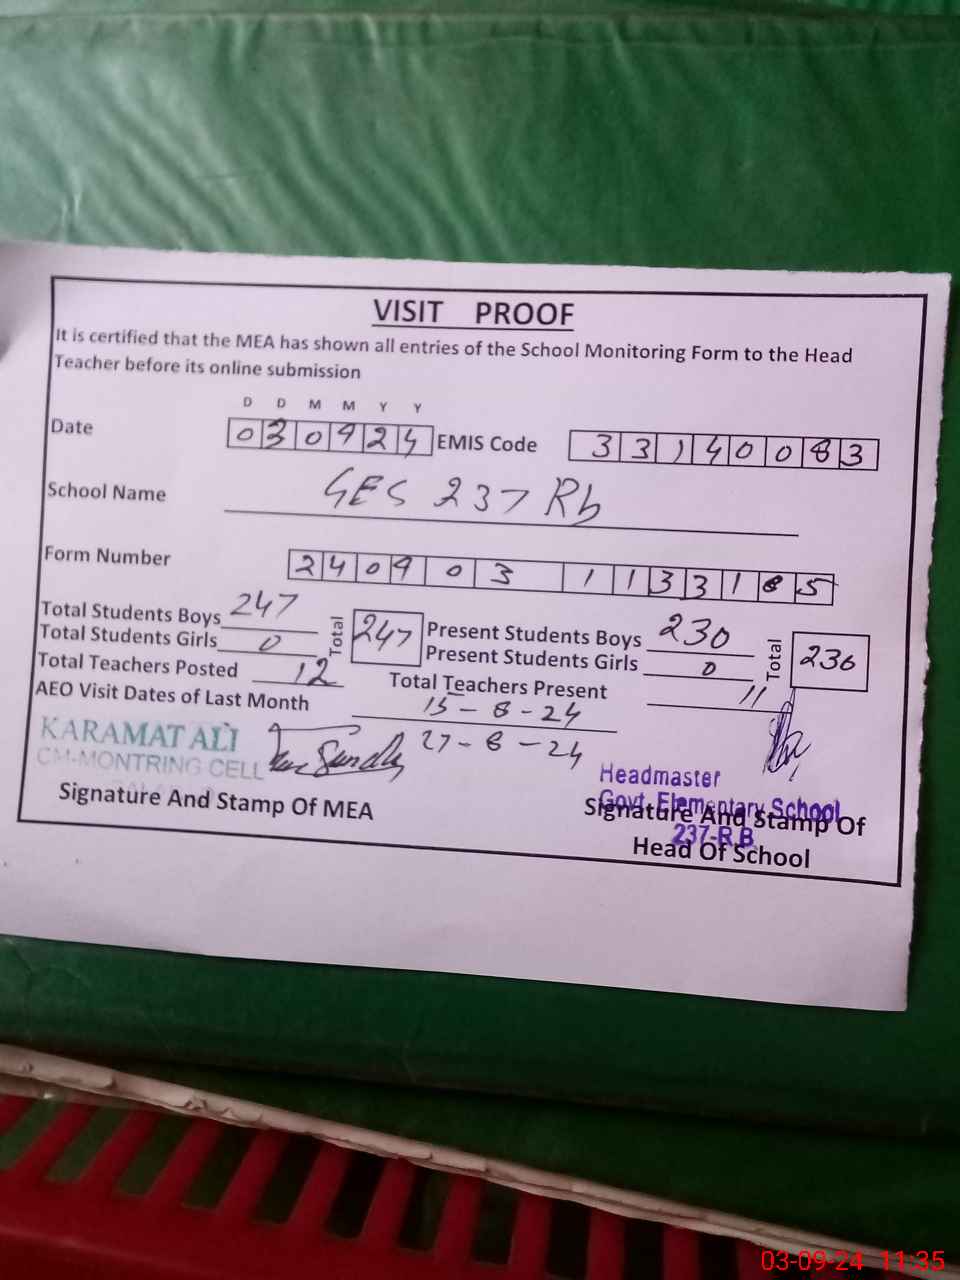 VISIT PROOF
It is certified that the MEA has shown all entries of the School Monitoring Form to the Head
Teacher before its online submission
D D M M Y Y
Date 0 3 0 9 2 4 EMIS Code 3 3 1 4 0 0 8 3
School Name GES 237 Rb
Form Number 2 4 0 9 0 3 1 1 3 3 1 8 5
Total Students Boys 247 Total 247 Present Students Boys 230 Total 230
Total Students Girls 0 Present Students Girls 0
Total Teachers Posted 12 Total Teachers Present 11
AEO Visit Dates of Last Month 15-8-24
27-8-24
KARAMAT ALI
CM-MONTRING CELL
Signature And Stamp Of MEA
Headmaster
Govt. Elementary School
237-R.B.
Signature And Stamp Of
Head Of School
03-09-24 11:35